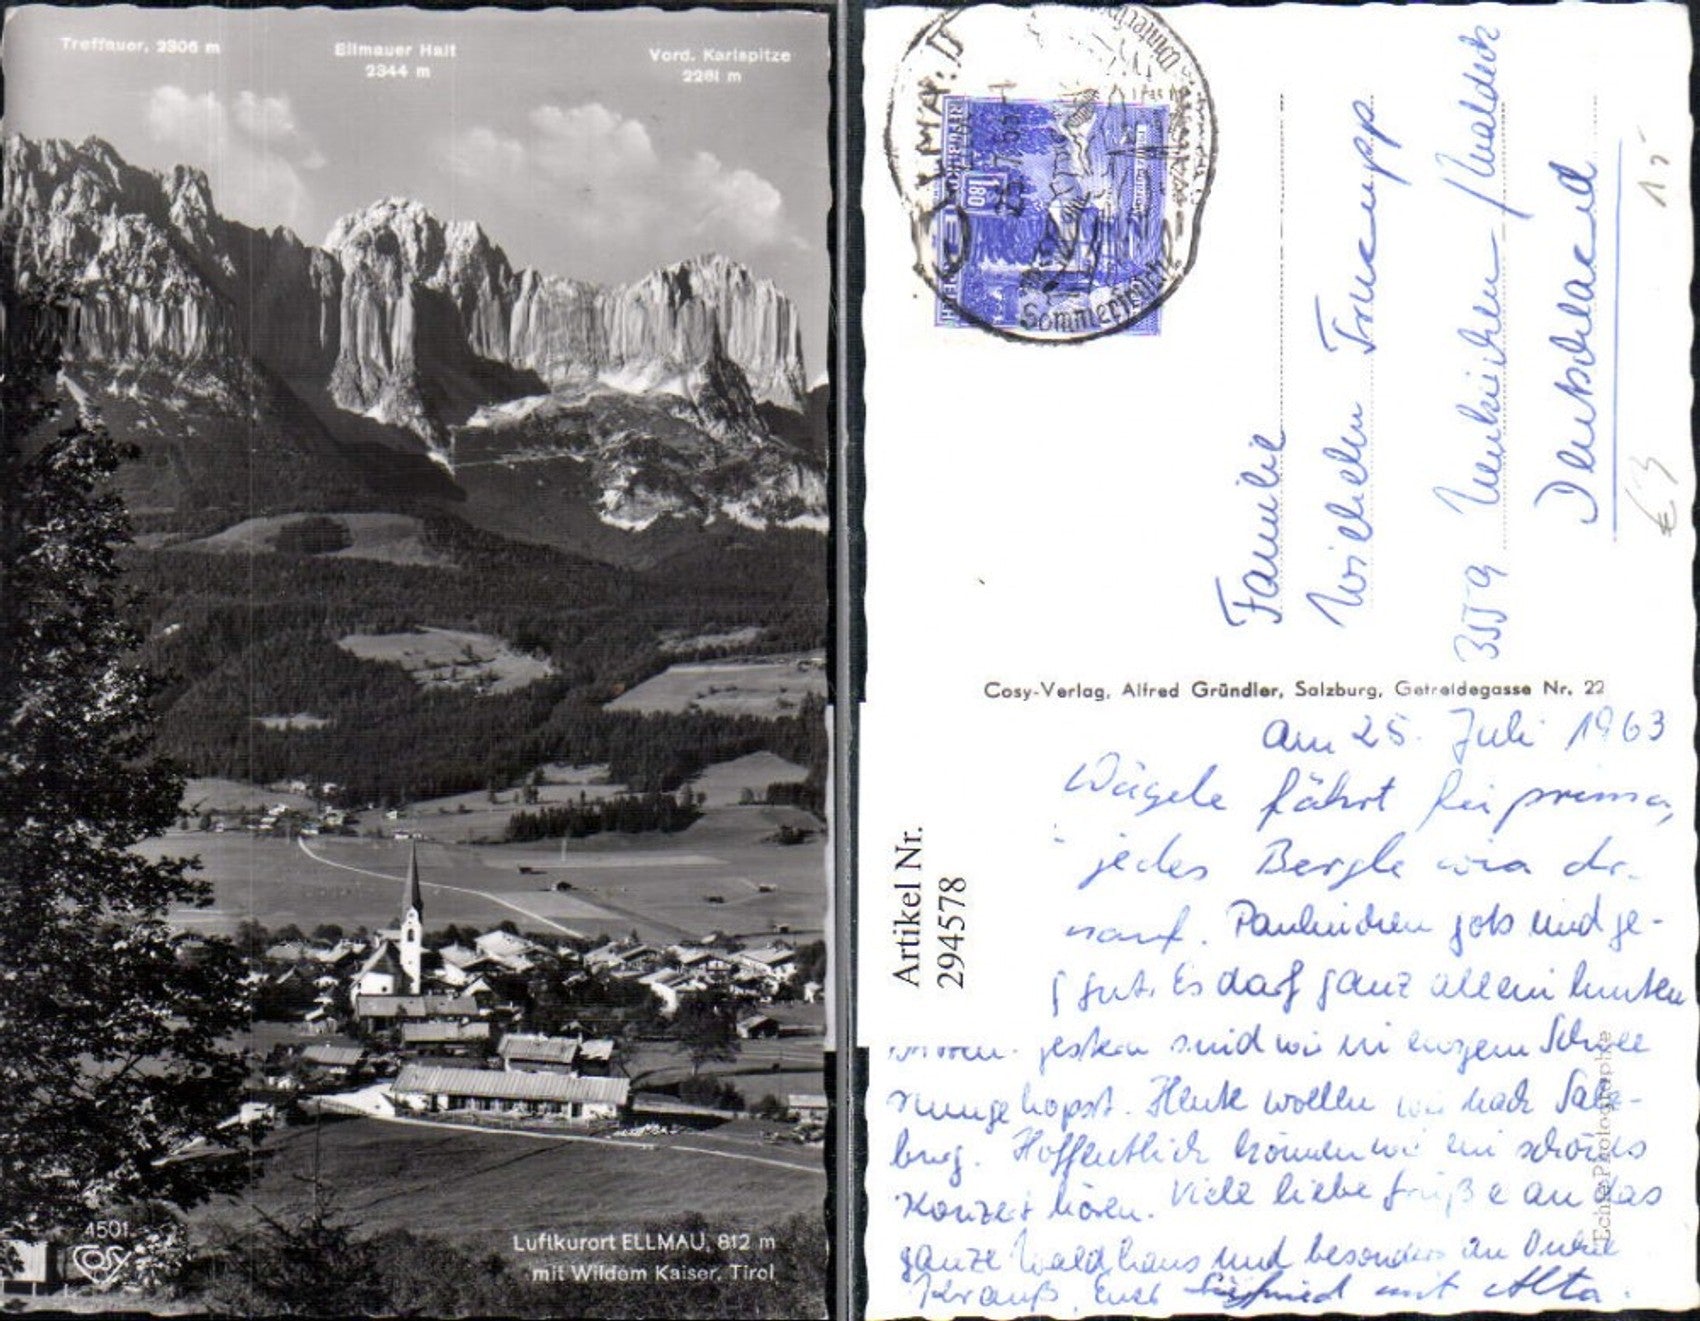 Treffauer, 2306 m
Ellmauer Halt
2344 m
Vord. Karlspitze
2261 m
4501
COSY
Luftkurort ELLMAU, 812 m
mit Wildem Kaiser, Tirol
Sommerfrische
1.80
Familie
Wilhelm
3559
Deutschland
1,-
€ 3
Cosy-Verlag, Alfred Gründler, Salzburg, Getreidegasse Nr. 22
Artikel Nr.
294578
Echte Photographie
am 25. Juli 1963
Wägele fährt prima,
jedes Bergle
nauf. und ge-
gut. Es darf ganz allein hinten
gestern sind wir in ewigem Schnee
rumgehopst. Heute wollen wir nach Salz-
burg. Hoffentlich können wir ein schönes
Konzert hören. Viele liebe Grüße an das
ganze Waldhaus und besonders an Onkel
Krauß, Euer Siegfried mit Alta.